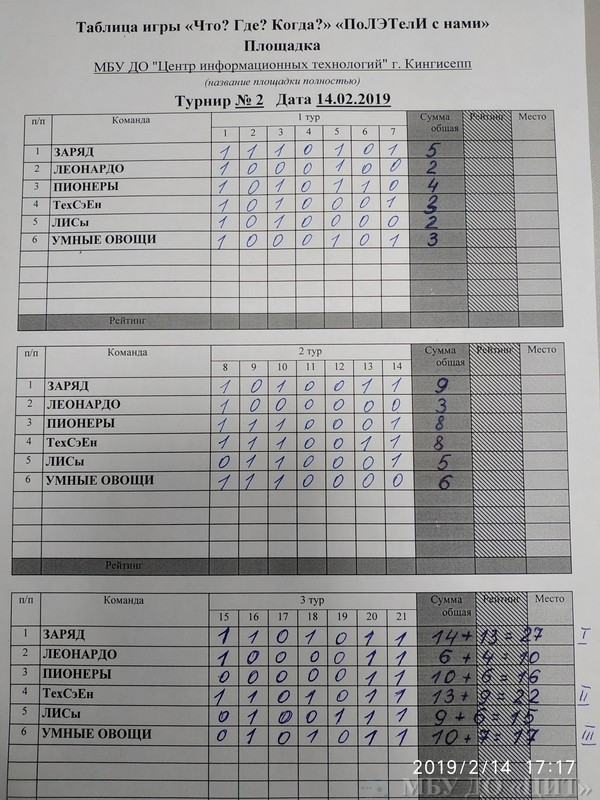 Таблица игры «Что? Где? Когда?» «ПоЛЭТелИ с нами»
Площадка
МБУ ДО "Центр информационных технологий" г. Кингисепп
(название площадки полностью)
Турнир № 2 Дата 14.02.2019
п/п Команда 1 тур Сумма общая Рейтинг Место
1 2 3 4 5 6 7
1 ЗАРЯД 1 1 1 0 1 0 1 5
2 ЛЕОНАРДО 1 0 0 0 1 0 0 2
3 ПИОНЕРЫ 1 0 1 0 1 1 0 4
4 ТехСэЕн 1 0 1 0 0 0 1 3
5 ЛИСы 1 0 1 0 0 0 0 2
6 УМНЫЕ ОВОЩИ 1 0 0 0 1 0 1 3
Рейтинг
п/п Команда 2 тур Сумма общая Рейтинг Место
8 9 10 11 12 13 14
1 ЗАРЯД 1 0 1 0 0 1 1 9
2 ЛЕОНАРДО 1 0 0 0 0 0 0 3
3 ПИОНЕРЫ 1 1 1 0 0 0 1 8
4 ТехСэЕн 1 1 1 0 0 1 1 8
5 ЛИСы 0 1 1 0 0 0 1 5
6 УМНЫЕ ОВОЩИ 1 1 1 0 0 0 0 6
Рейтинг
п/п Команда 3 тур Сумма общая Рейтинг Место
15 16 17 18 19 20 21
1 ЗАРЯД 1 1 0 1 0 1 1 14 + 13 = 27 I
2 ЛЕОНАРДО 1 0 0 0 0 1 1 6 + 4 = 10
3 ПИОНЕРЫ 0 0 0 0 0 1 1 10 + 6 = 16
4 ТехСэЕн 1 1 0 1 0 1 1 13 + 9 = 22 II
5 ЛИСы 0 1 0 0 1 1 1 9 + 6 = 15
6 УМНЫЕ ОВОЩИ 0 1 0 1 0 1 1 10 + 7 = 17 III
2019/2/14 17:17
МБУ ДО «ЦИТ»